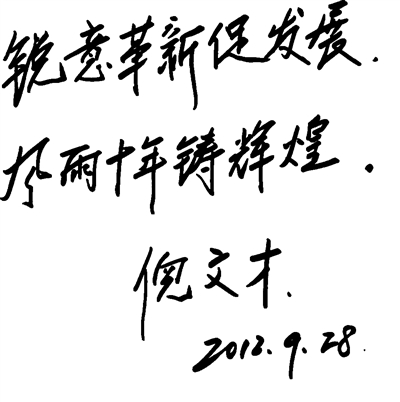 锐意革新促发展.
风雨十年铸辉煌.
倪文才.
2012.9.28.